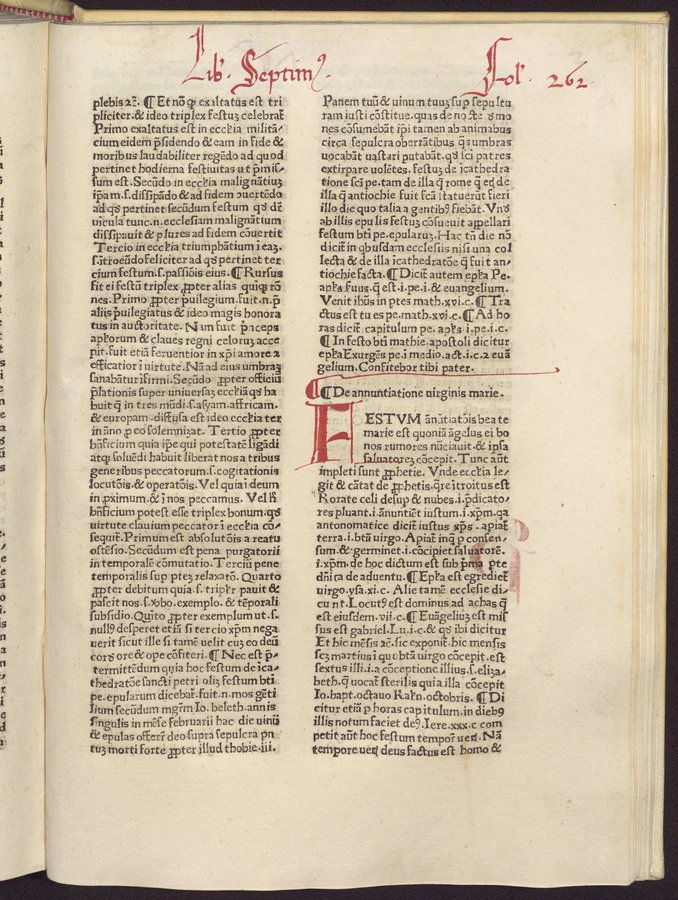 Lib. Septimꝰ.
Fol. 262.
plebis ⁊c̄. ¶ Et nō ꝙ exaltatus est tri
pliciter. & ideo triplex festuꝫ celebrat̄
Primo exaltatus est in eccľia militā⸗
cium eidem p̄sidendo & eam in fide &
moribus laudabiliter regēdo ad quod
pertinet hodierna festiuitas ut p̄mis⸗
sum est. Secūdo in eccľia malignātiuꝫ
ip̄am .s. dissipādo & ad fidem ꝯuertēdo
ad qꝫ pertinet secūdum festum qꝫ dr̄
uīcula tunc .n. ecclesiam malignātium
dissipauit & plures ad fidem cōuertit
Tercio in eccľia triumphātium ī eaꝫ.
.s. ītroeūdo feliciter ad qꝫ pertinet ter
cium festum .s. passiōis eius. ¶ Rursus
fit ei festū triplex ꝓpter alias quiqꝫ rō
nes. Primo ꝓpter p̄uilegium. fuit .n. p̄
aliis p̄uilegiatus & ideo magis honora
tus in auctoritate. Nam fuit p̄nceps
apľorum & claues regni celoruꝫ acce
pit. fuit etiā feruentior in xp̄i amore ⁊
efficatior ī uirtute. Nā ad eius umbraꝫ
sanabātur īfirmi. Secūdo ꝓpter officiū
p̄lationis super uniuersaꝫ eccľiā qꝫ ha
buit ꝗ in tres mūdi .s. asyam. affricam.
& europam diffusa est ideo eccľia ter
in āno ꝑ eo solemnizat. Tertio ꝓpter
bn̄ficium quia ip̄e qui potestatē ligādi
atqꝫ soluēdi habuit liberat nos a tribus
generibus peccatorum .s. cogitationis
locutōis. & operatōis. Vel quia ī deum
in ꝓximum. & ī nos peccamus. Vel ħ
bn̄ficium potest esse triplex bonum. qꝫ
uirtute clauium peccator ī eccľia cō⸗
sequit̄. Primum est absolutōis a reatu
ostēsio. Secūdum est pena purgatorii
in temporalē cōmutatio. Terciū pene
temporalis sup pteꝫ relaxatō. Quarto
ꝓpter debitum quia .s. tripľr pauit &
pascit nos .s. xƀo. exemplo. & tēporali
subsidio. Quīto ꝓpter exemplum ut .s.
nullꝰ desperet etiā si tercio xp̄m nega
uerit sicut ille si tamē uelit cuꝫ eo deū
corꝺ ore & ope cōfiteri. ¶ Nec est p̄⸗
termittēdum quia hoc festum de īca⸗
thedratōe sancti petri oliꝫ festum bti
pe. epularum dicebat̄. fuit .n. mos gēti
lium secūdum mgr̄m Io. beleth. annis
singulis in mēse februarii hac die uinū
& epulas offerr̄ deo supra sepulcra pn
tuꝫ morti forte ꝓpter illud thobie .iii.
Panem tuū & uinum tuuꝫ suꝑ sepultu
ram iusti cōstitue. quas de nocte ꝺmo
nes cōsumebāt ip̄i tamen ab animabus
circa sepulcra oberrātibus qꝫ umbras
uocabāt uastari putabāt. qꝫ sci patres
extirpare uolētes. festuꝫ de īcathedra
tione sci pe. tam de illa ꝗ rome ꝗ eꝗ de
illa ꝗ antiochie fuit fc̄a istatuerūt fieri
illo die quo talia a gentibꝰ fiebāt. Vnꝺ
ab illis epulis festuꝫ cōsueuit appellari
festum bti pe. epularuꝫ. Hac tn̄ die nō
dicit̄ in qƀusdam ecclesiis nisi una col
lecta & de illa īcathedratōe ꝗ fuit an⸗
tiochie facta. ¶ Dicit̄ autem epľa Pe.
apľs fuus. ꝗ est .i. pe. i. & euangelium.
Venit iħus in ptes math. xvi. c. ¶ Tra
ctus est tu es pe. math. xvi. c. ¶ Ad ho
ras dicit̄ capitulum pe. apľs .i. pe. i. c.
¶ In festo bti mathie. apostoli dicitur
epľa Exurgēs pe. ī medio. act. i. c. ⁊ euā
gelium. Confitebor tibi pater.
¶ De annuntiatione virginis marie.
FESTVM ānūtiatōis beate
marie est quoniā āgelus ei bo
nos rumores nūciauit. & ipsa
saluatoreꝫ cōcepit. Tunc aūt
impleti sunt ꝓphetie. Vnde eccľia le⸗
git & cātat de ꝓphetis. qr̄e ītroitus est
Rorate celi desup & nubes .i. p̄dicato⸗
res pluant .i. ānuntiēt iustum .i. xp̄m. qa
antonomatice dicit̄ iustus xp̄s . apiat̄
terra .i. btā uirgo. Apiat̄ inꝗ ꝑ consen⸗
sum. & germinet .i. cōcipiet saluatorē.
.i. xp̄m. de hoc dictum est sub p̄ma pte
dn̄ica de aduentu. ¶ Epľa est egrediet̄
uirgo. ysa. xi. c. Alie tamē ecclesie di⸗
cunt. Locutꝰ est dominus ad achas ꝗ
est eiusdem .vii. c. ¶ Euāgeliuꝫ est mis
sus est gabriel. Lu. i. c. & qꝫ ibi dicitur
Et hic mēsis ⁊c̄. sic exponit̄. hic mensis
scꝫ martius ī quo btā uirgo cōcepit. est
sextus illi .i. a cōceptione illius .s. eliza⸗
beth. ꝗ uocat̄ sterilis quia illa cōcepit
Io. bapt. octauo Kaľn. octobris. ¶ Di
citur etiā ꝑ horas capitulum. in diebꝰ
illis notum faciet deꝰ. Iere. xxx. c com
petit aūt hoc festum temporꝫ uerꝫ. Nā
tempore uerꝫ deus factus est homo &